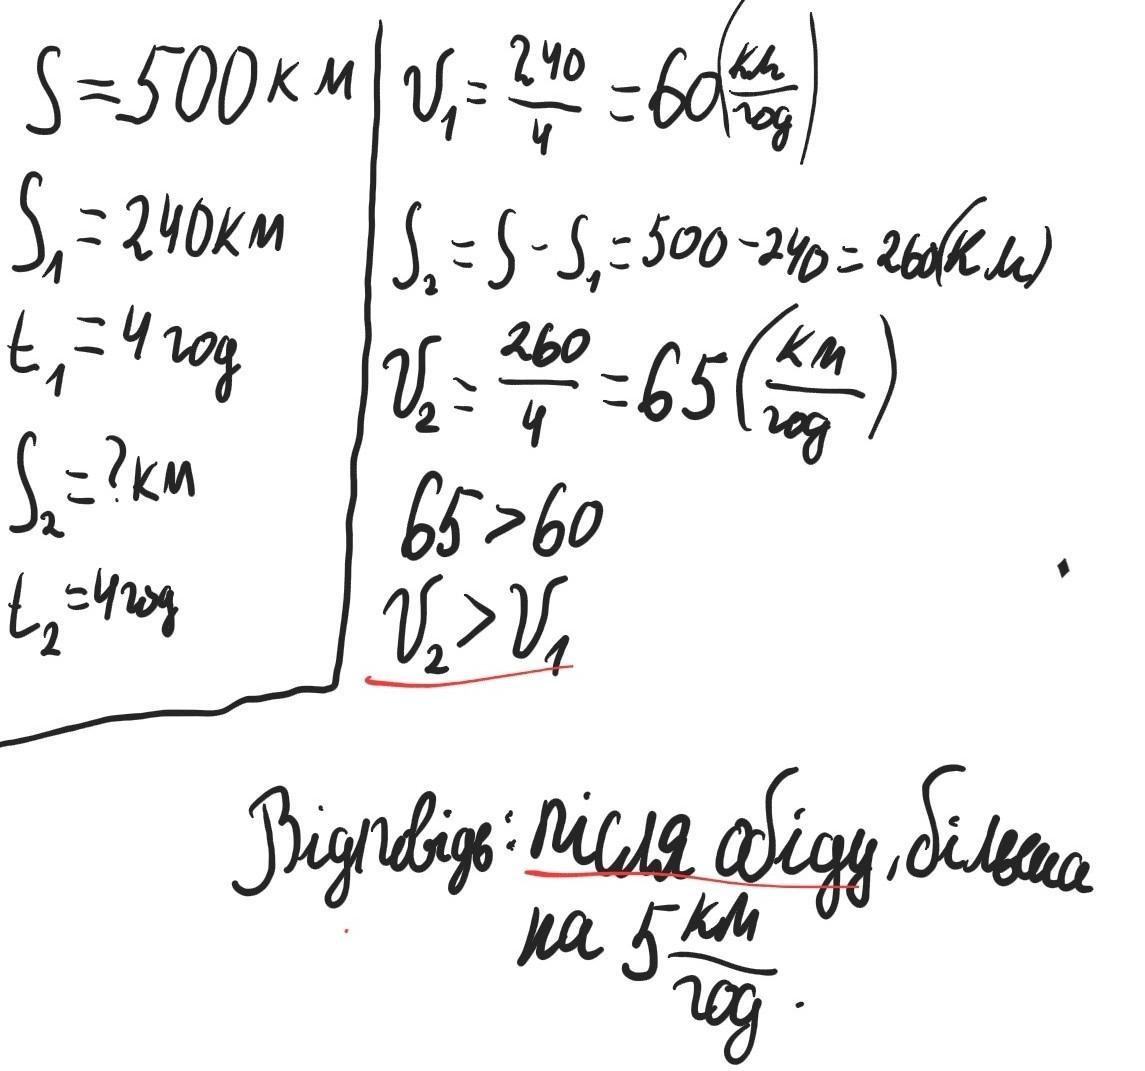 S = 500 км
S₁ = 240 км
t₁ = 4 год
S₂ = ? км
t₂ = 4 год
V₁ = 240/4 = 60 (км/год)
S₂ = S - S₁ = 500 - 240 = 260 (км)
V₂ = 260/4 = 65 (км/год)
65 > 60
V₂ > V₁
Відповідь: після обіду, більша
на 5 км/год.